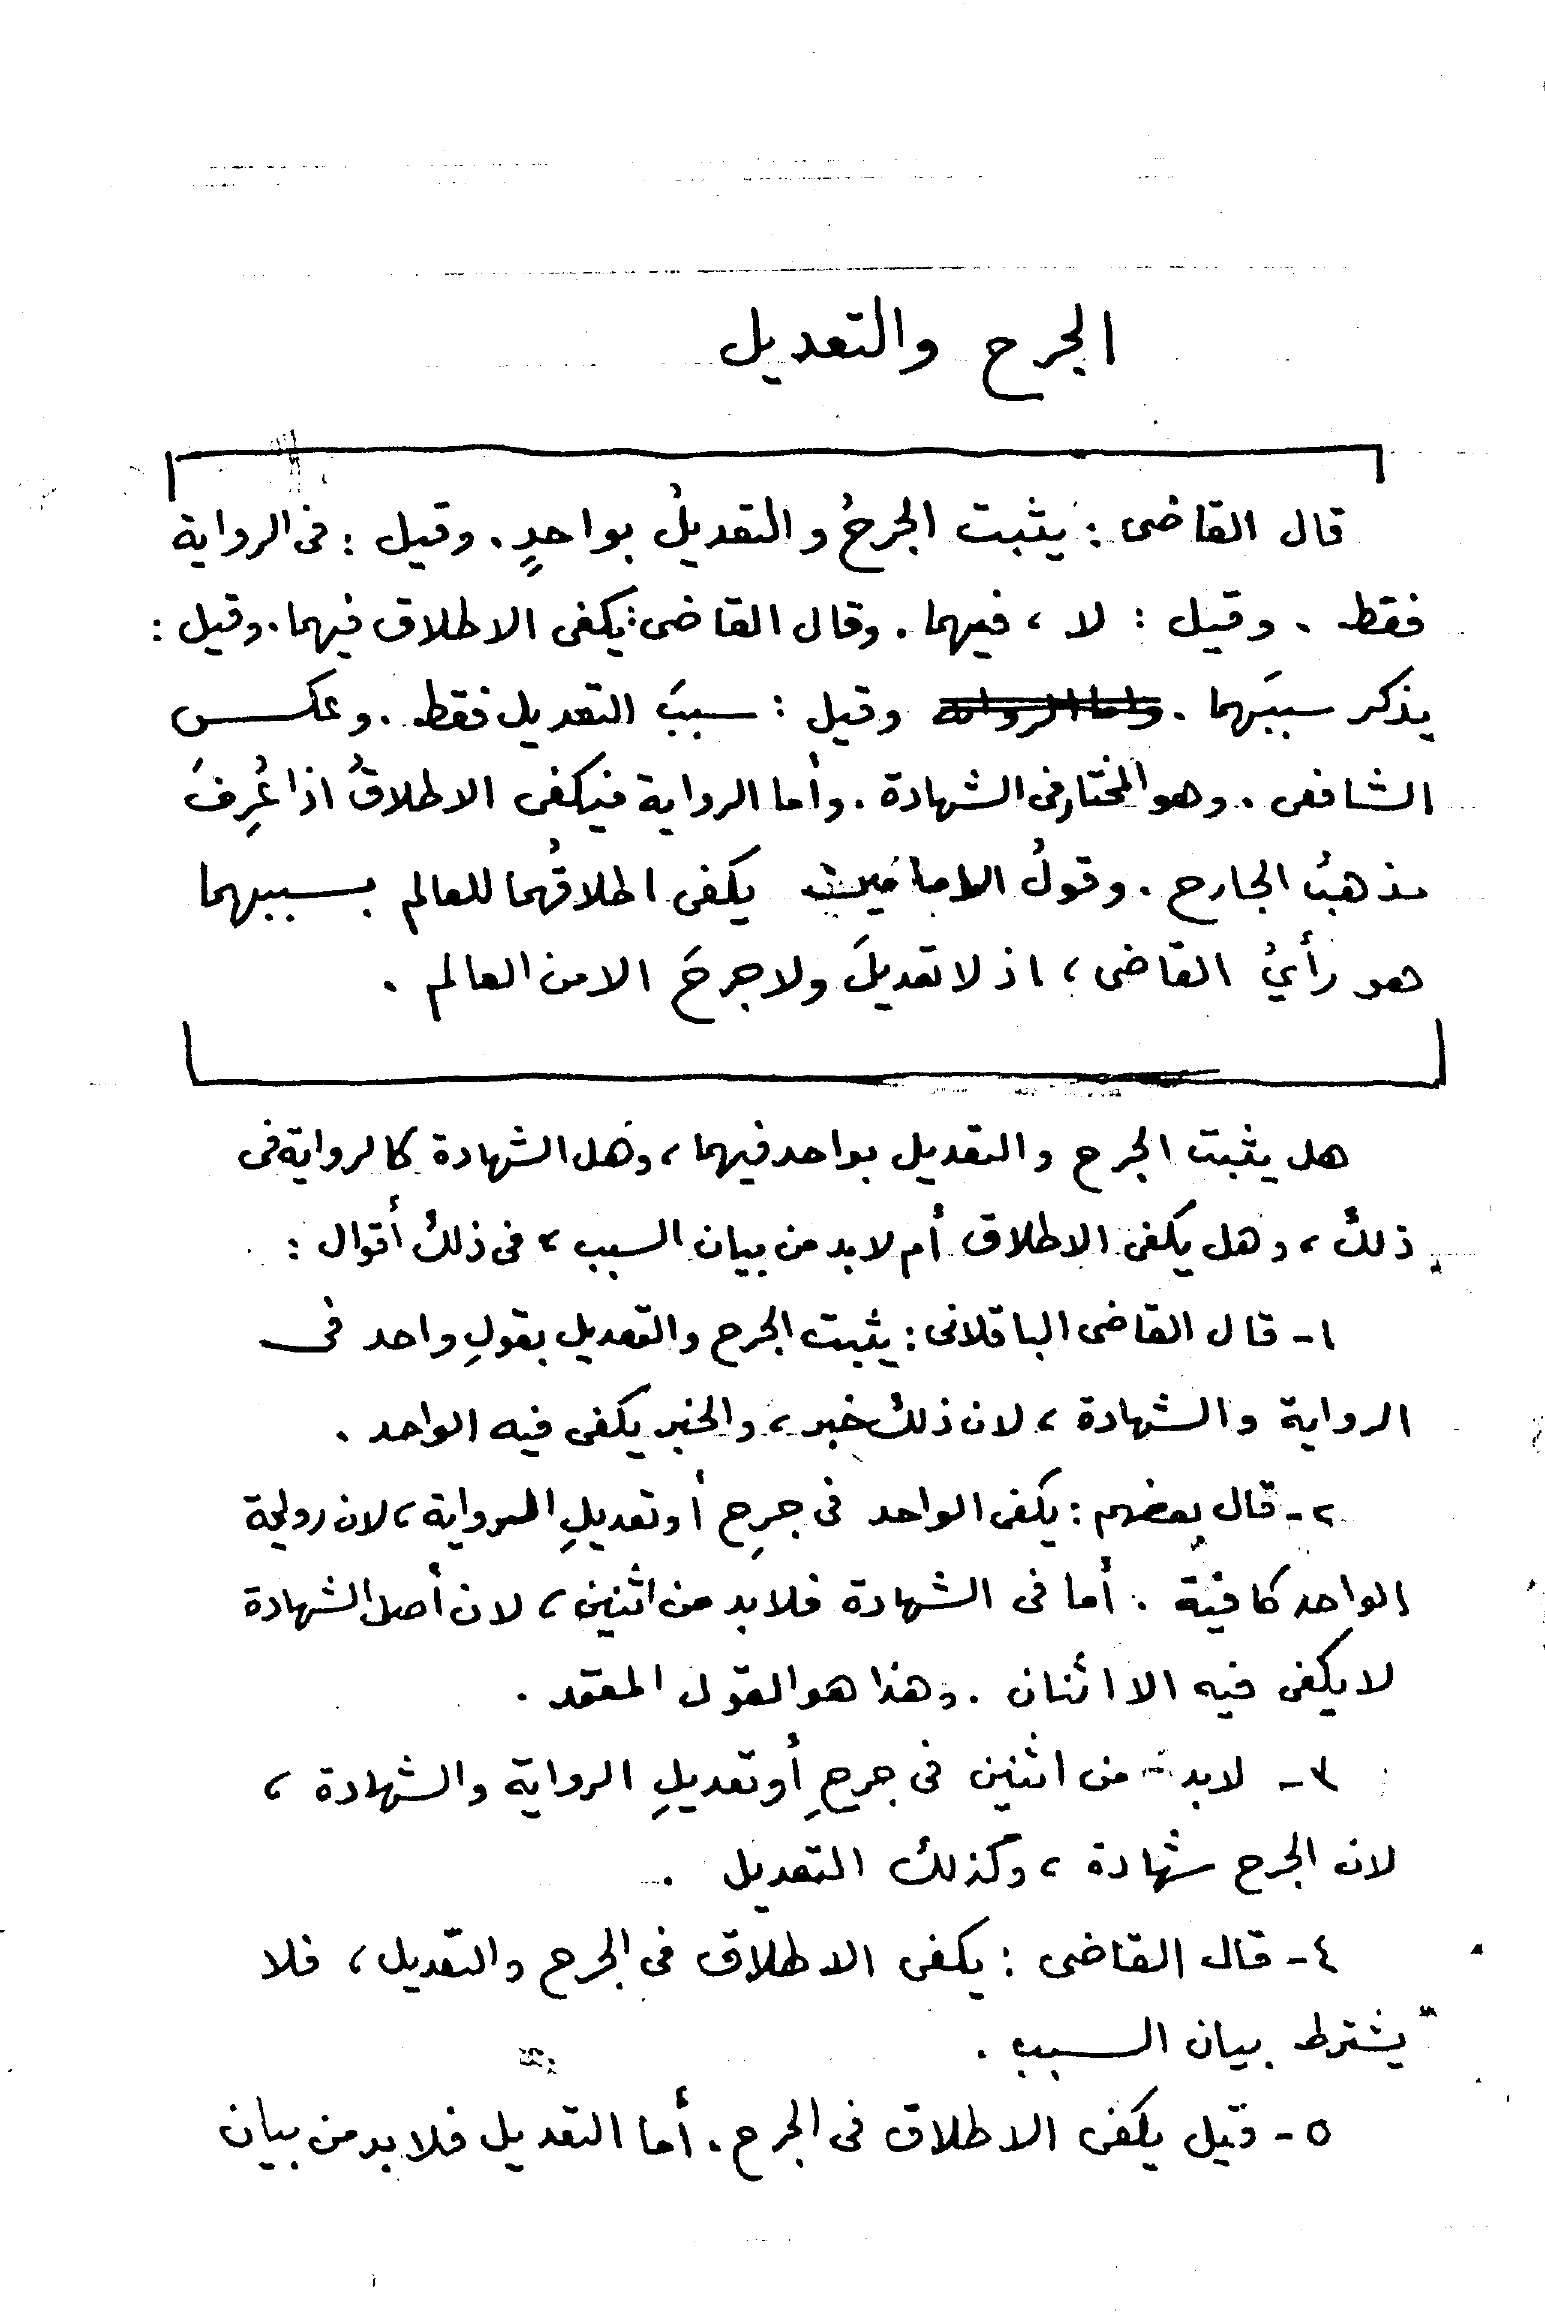 الجرح والتعديل
قال القاضى : يثبت الجرحُ والتعديلُ بواحدٍ . وقيل : فى الرواية
فقط . وقيل : لا ، فيهما . وقال القاضى : يكفى الاطلاق فيهما . وقيل :
يذكر سببَهما . وقيل : سببَ التعديل فقط . وعكس
الشافعى . وهو المختار فى الشهادة . وأما الرواية فيكفى الاطلاقُ اذا عُرِفَ
مذهبُ الجارح . وقولُ الامامين يكفى اطلاقُهما للعالم بسببهما
هو رأيُ القاضى ، اذ لا تعديلَ ولا جرحَ الا من العالم .
هل يثبت الجرح والتعديل بواحد فيهما ، وهل الشهادة كالرواية فى
ذلك ، وهل يكفى الاطلاق أم لا بد من بيان السبب ، فى ذلك أقوال :
١- قال القاضى الباقلانى : يثبت الجرح والتعديل بقولِ واحد فى
الرواية والشهادة ، لان ذلك خبر ، والخبر يكفى فيه الواحد .
٢- قال بعضهم : يكفى الواحد فى جرحِ أو تعديلِ الرواية ، لان رواية
الواحد كافية . أما فى الشهادة فلا بد من اثنين ، لان أصل الشهادة
لا يكفى فيه الا اثنان . وهذا هو القول المعتمد .
٣- لابد من اثنين فى جرحِ أو تعديلِ الرواية والشهادة ،
لان الجرح شهادة ، وكذلك التعديل .
٤- قال القاضى : يكفى الاطلاق فى الجرح والتعديل ، فلا
يشترط بيان السبب .
٥- قيل يكفى الاطلاق فى الجرح . أما التعديل فلا بد من بيان